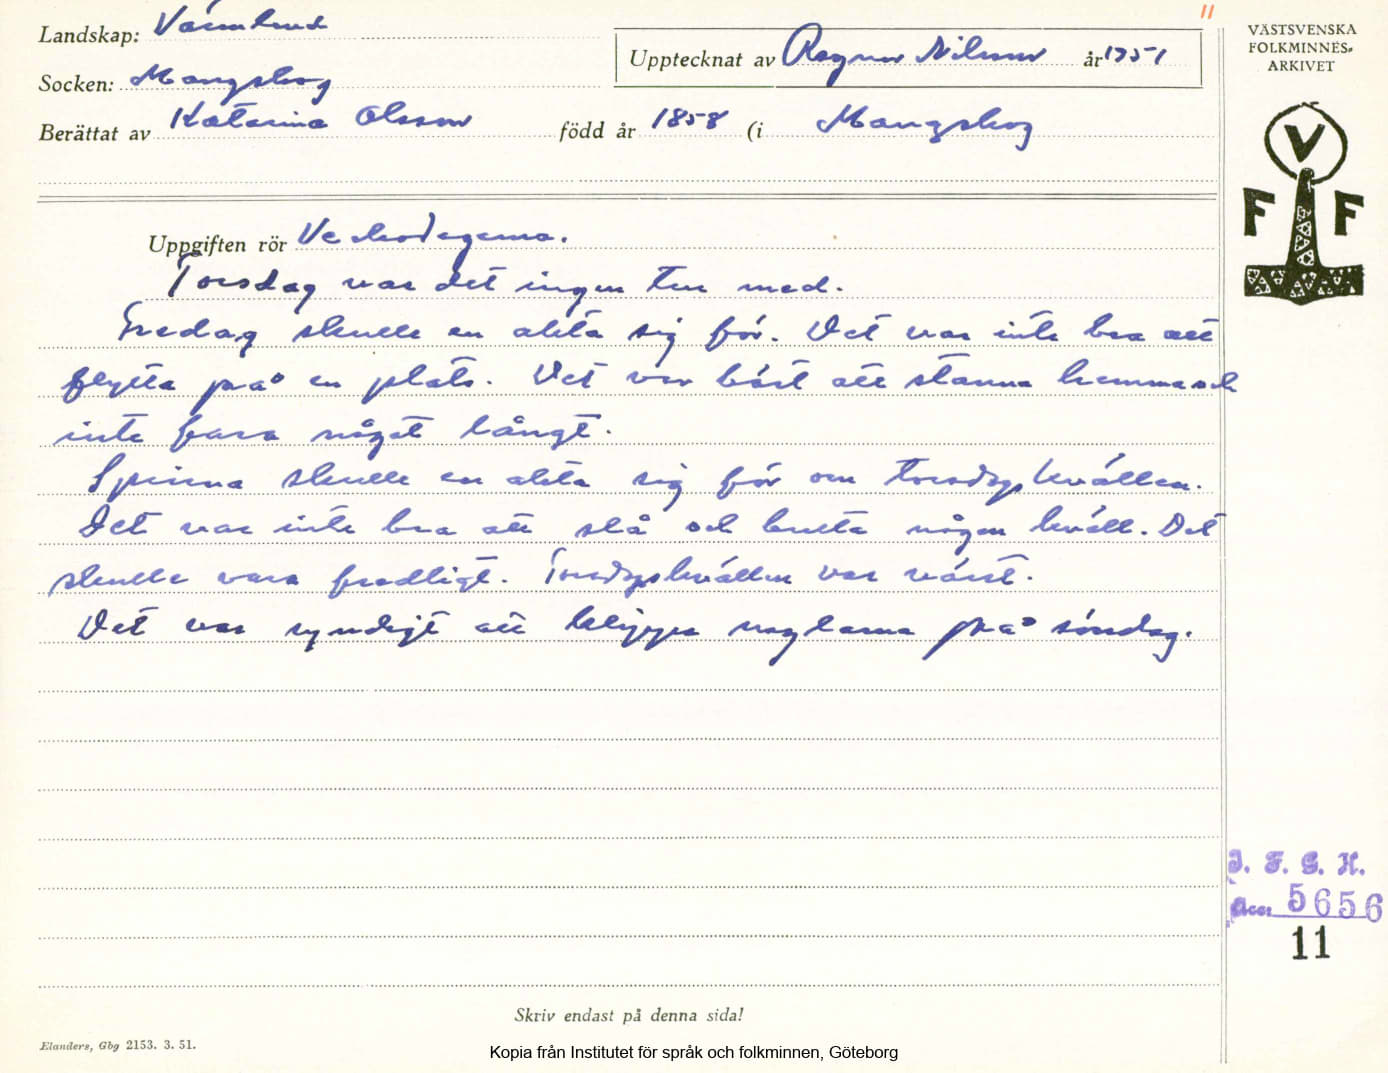 11
Landskap: Värmland
Upptecknat av Ragnar Nilsson år 1951
Socken: Mangskog
Berättat av Katarina Olsson född år 1858 (i Mangskog
VÄSTSVENSKA
FOLKMINNES-
ARKIVET
V
F F
Uppgiften rör Veckodagarna.
Torsdag var det ingen tur med.
Fredag skulle en akta sig för. Det var inte bra att
flytta på en plats. Det var bäst att stanna hemma och
inte fara något långt.
Spinna skulle en akta sig för om torsdagskvällen.
Det var inte bra att slå och bulta någon kväll. Det
skulle vara fredligt. Torsdagskvällen var värst.
Det var syndigt att klippa naglarna på söndag.
I. F. G. H.
Acc. 5656
11
Skriv endast på denna sida!
Elanders, Gbg 2153. 3. 51.
Kopia från Institutet för språk och folkminnen, Göteborg